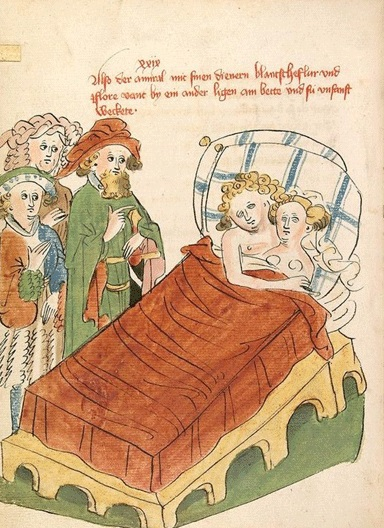 xxix
Also der amiral mit sinen dienern blantscheflur vnd
flore vant by ein ander ligen am bette vnd su vnsanft
weckete.